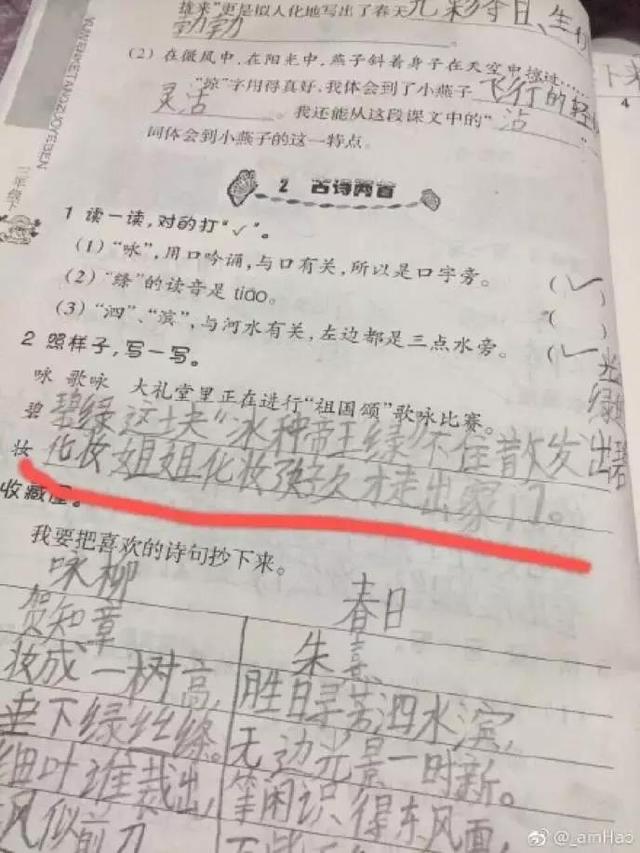 雄来”更是似人化地写出了春天光彩夺目、生
勃勃
(2) 在微风中，在阳光中，燕子斜着身子在天空中掠过……
“掠”字用得真好，我体会到了小燕子飞行的轻
灵活。我还能从这段课文中的“沾”
同体会到小燕子的这一特点。
三年级下
2 古诗两首
1 读一读，对的打“✓”。
(1)“咏”，用口吟诵，与口有关，所以是口字旁。 (✓)
(2)“绦”的读音是 tiāo。 ( )
(3)“泗”、“滨”，与河水有关，左边都是三点水旁。 (✓
2 照样子，写一写。
咏 歌咏 大礼堂里正在进行“祖国颂”歌咏比赛。
碧 碧绿 这块“冰种帝王绿”不住散发出碧
绿
光
妆 化妆 姐姐化妆了好久才走出家门。
收藏屋。
我要把喜欢的诗句抄下来。
咏柳
贺知章
妆成一树高，
垂下绿丝绦。
细叶谁裁出，
风似剪刀
春日
朱熹
胜日寻芳泗水滨，
无边光景一时新。
等闲识得东风面，
下来
4
@_amHao